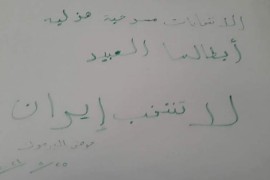 الانتخابات مسرحية هزلية
أبطالها العبيد
لا تنتخب إيران